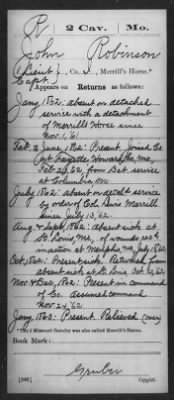 R | 2 Cav. | Mo.
John Robinson
Lieut, Co. I, Merrill's Horse.*
Capt
Appears on
Returns as follows:
Jany 1862: absent on detached
service with a detachment
of Merrill's Horse since
Nov. 1, 61
Feb. to June, 1862: Present. Joined Co
at Fayette Howard Co, Mo,
Feb 26, 62 from Det. service
at Columbia Mo.
July 1862: absent on detch service
by order of Col. Lewis Merrill
since July 13, 62
Aug & Sept, 1862: absent sick at
St. Louis, Mo, of wounds rec'd
in action at Memphis, Mo, July 18, 62
Oct, 1862: Present sick. Returned from
absent sick at St. Louis, Oct 62
Nov & Dec, 1862: Present in command
of Co. assumed command
Nov. 24, 62
Jany, 1863: Present. Relieved (over)
*The 2 Missouri Cavalry was also called Merrill's Horse.
Book Mark:
Gruber
(546) Copyist.